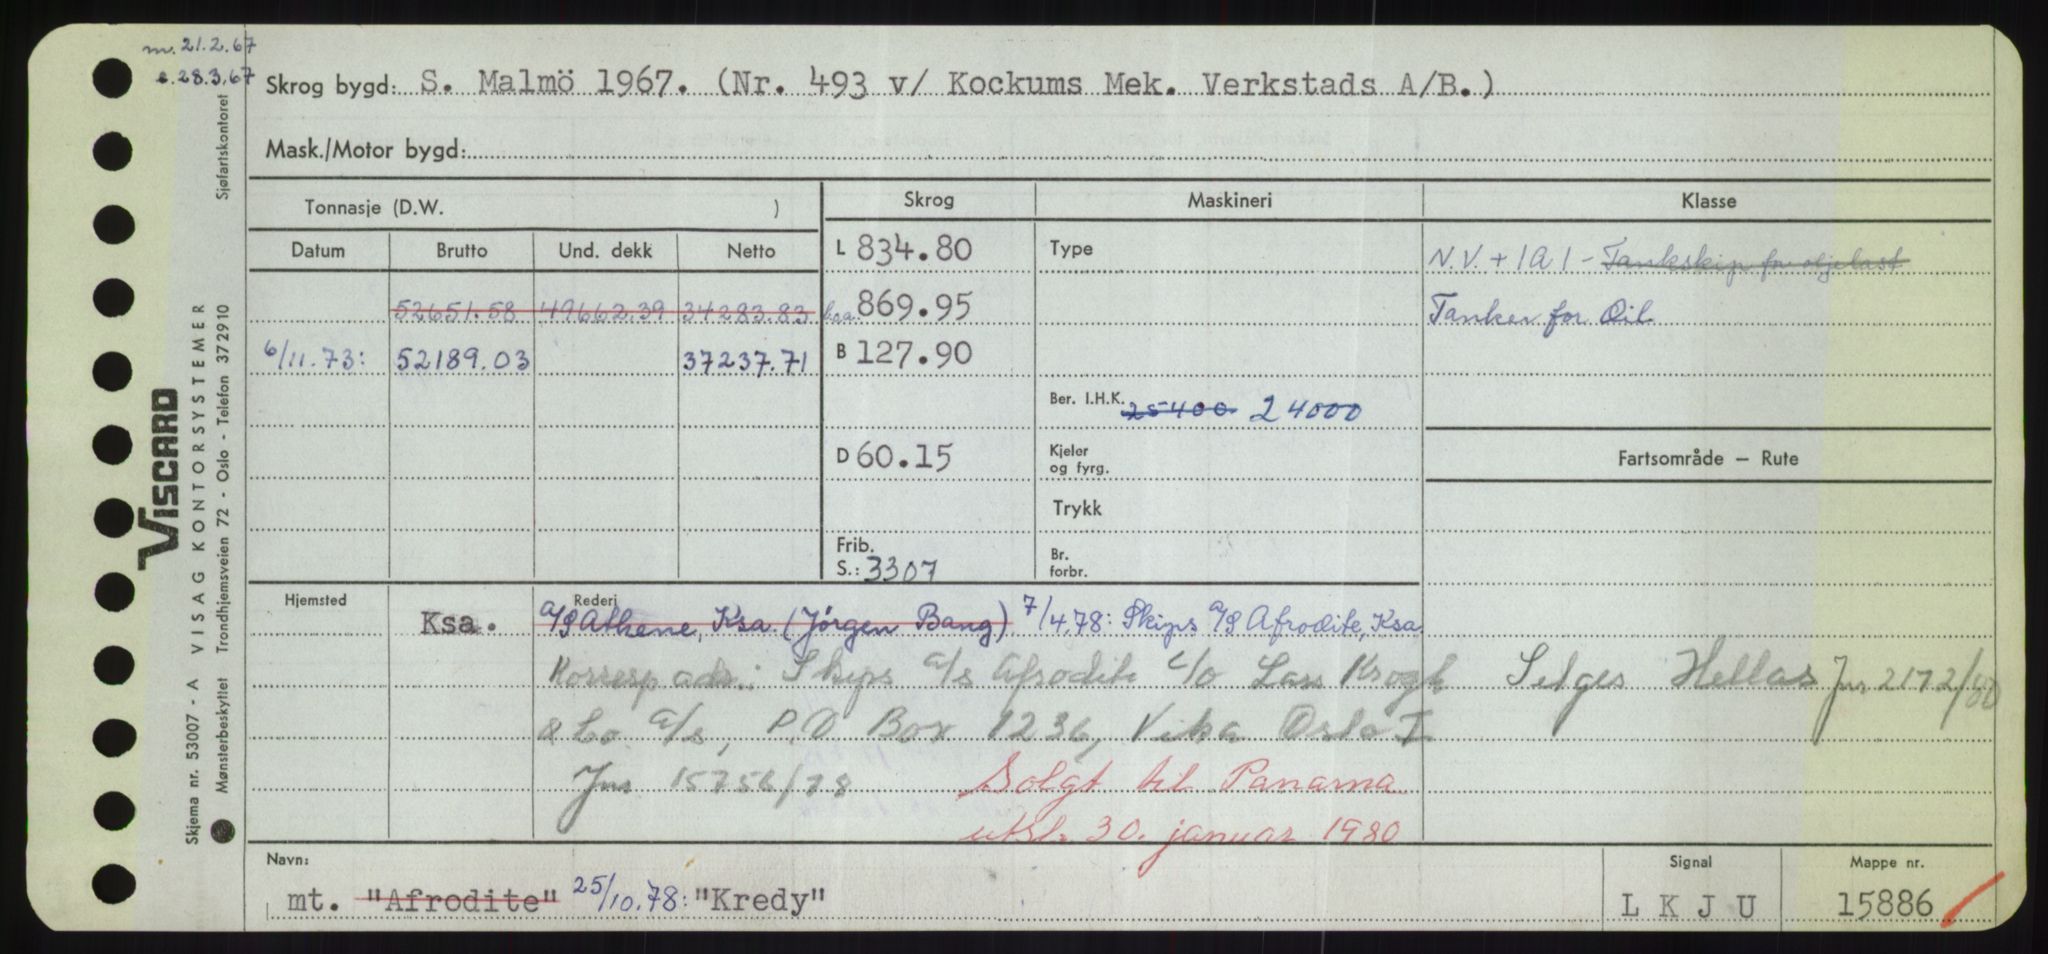 m. 21.2.67
e. 28.3.67
Skrog bygd: S. Malmö 1967. (Nr. 493 v/ Kockums Mek. Verkstads A/B.)
Mask./Motor bygd:
Tonnasje (D.W. )
Skrog Maskineri Klasse
Datum Brutto Und. dekk Netto
L 834.80 Type N.V. + 1A1 - Tankskip for oljelast
52651.58 49662.39 34283.83 869.95 Tanker for Oil
6/11.73: 52189.03 37237.71 B 127.90
Ber. I.H.K. 25400 24000
D 60.15 Kjeler og fyrg. Fartsområde – Rute
Trykk
Frib. S.: 3307 Br. forbr.
Hjemsted Ksa. Rederi A/S Athene, Ksa. (Jörgen Bang) 7/4.78: Skips A/S Afrodite, Ksa.
Korresp adr.: Skips a/s Afrodite c/o Lars Krogh Selges Hellas Jnr 2172/80
& Co a/s, P.O Box 1236, Vika Oslo I
Jnr 15756/78 Solgt til Panama
utsl. 30. januar 1980
Navn: Signal Mappe nr.
mt. "Afrodite" 25/10.78: "Kredy" L K J U 15886
VISCARD
Skjema nr. 53007 - A VISAG KONTORSYSTEMER
Mønsterbeskyttet Trondhjemsveien 72 - Oslo - Telefon 372910 Sjøfartskontoret